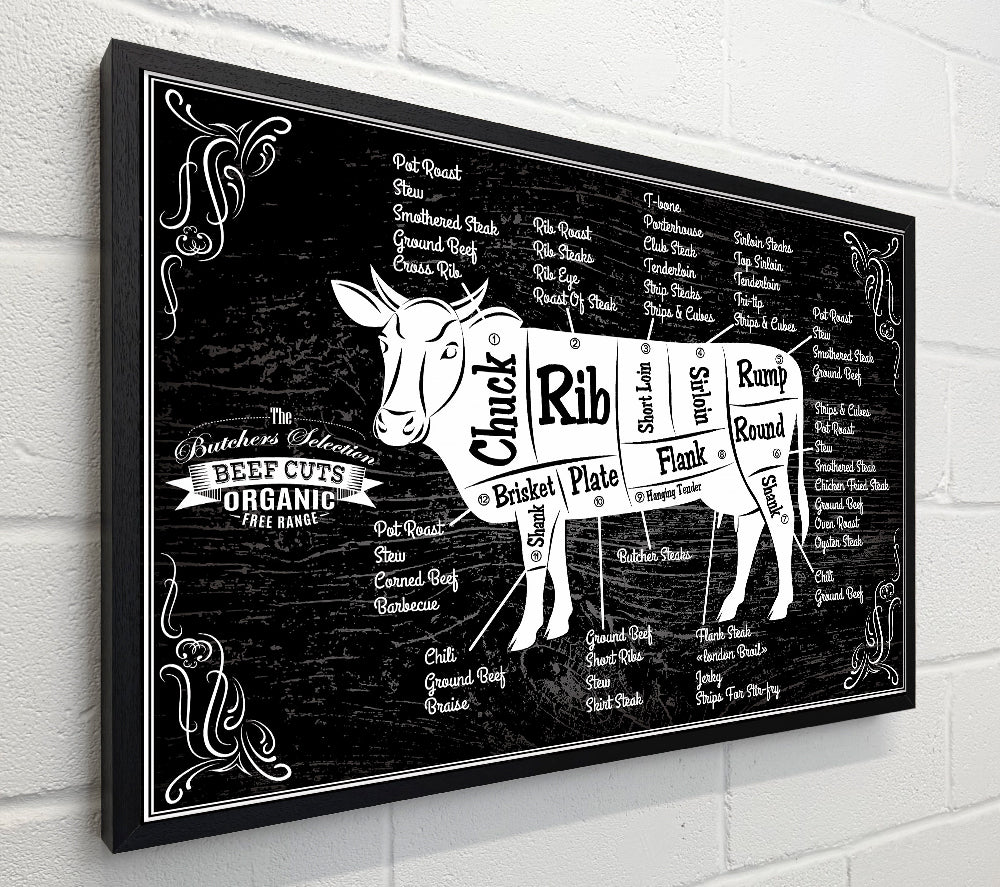 Pot Roast
Stew
Smothered Steak
Ground Beef
Cross Rib
Rib Roast
Rib Steaks
Rib Eye
Roast Of Steak
T-bone
Porterhouse
Club Steak
Tenderloin
Strip Steaks
Strips & Cubes
Sirloin Steaks
Top Sirloin
Tenderloin
Tri-tip
Strips & Cubes
Pot Roast
Stew
Smothered Steak
Ground Beef
Strips & Cubes
Pot Roast
Stew
Smothered Steak
Chicken Fried Steak
Ground Beef
Oven Roast
Oyster Steak
Chili
Ground Beef
1
Chuck
2
Rib
3
Short Loin
4
Sirloin
5
Rump
Round
6
Flank 8
9 Hanging Tender
Shank
7
12 Brisket
Plate
10
Shank
11
The
Butchers Selection
BEEF CUTS
ORGANIC
FREE RANGE
Pot Roast
Stew
Corned Beef
Barbecue
Chili
Ground Beef
Braise
Ground Beef
Short Ribs
Stew
Skirt Steak
Butcher Steaks
Flank Steak
«london Broil»
Jerky
Strips For Stir-fry